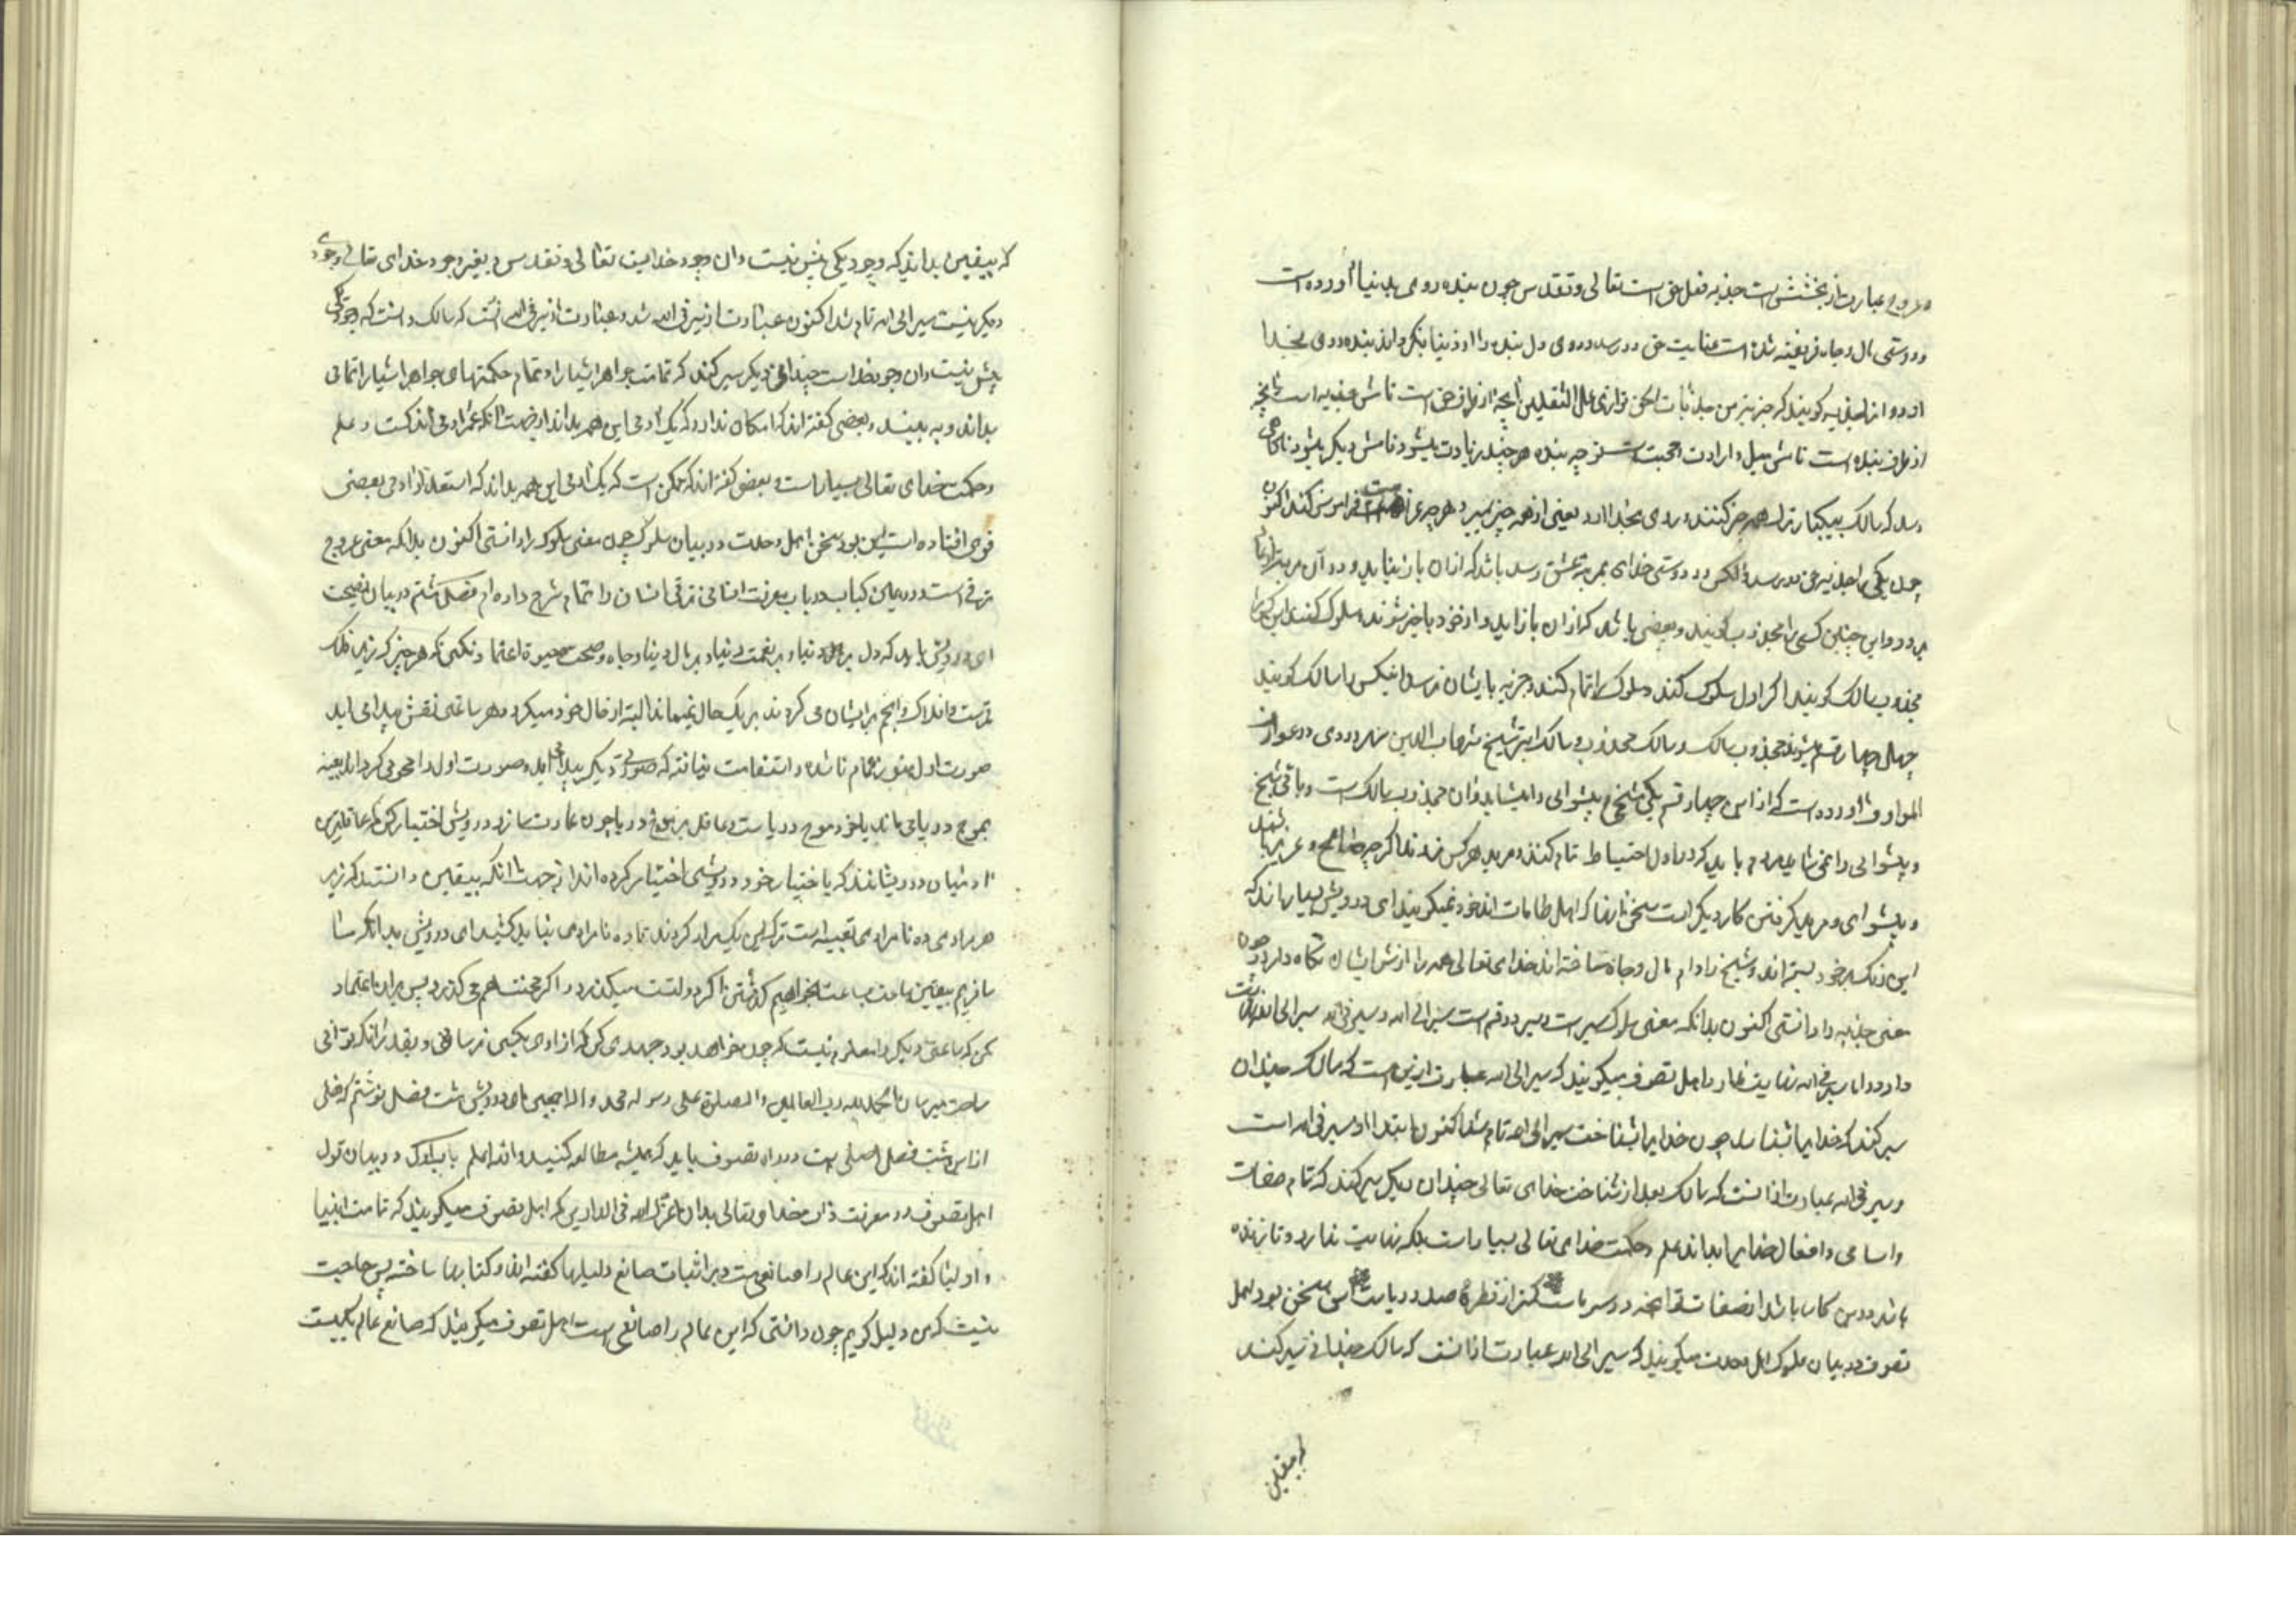 عبارت از بخشش است جذبه فعل حق است تعالی و تقدس چون بنده روی بدنیا آورده است
و دوستی مال و جاه فریفته شده است عنایت حق در رسد و روی دل بنده را از دنیا بگرداند بنده روی بخدا
آورد از جذبه گویند که جذبة من جذبات الحق توازی عمل الثقلین آنچه از طرف حق است نامش جذبه است و آنچه
از طرف بنده است نامش میل و ارادت و محبت است توجه بنده هر چند زیادت میشود نامش دیگر میشود تا بجایی
رسد که سالک بیکبار ترک همه چیز کنند و روی بخدا آرد یعنی از همه چیز ببرد و هر چه غیر از خداست فراموش کند اکنون
چون یکی را جذبه حق در رسد و آنکس در دوستی خدای بمرتبه عشق رسد باشد که از آن باز نیاید و در آن مرتبه
و این چنین کسی را مجذوب گویند و بعضی باشد که از آن باز آید و از خود باخبر شوند و سلوک کنند این کس را
مجذوب سالک گویند و اگر اول سلوک کند و سلوک را تمام کند و جذبه بایشان نرسد اینکس را سالک گویند
چهار قسم میشوند مجذوب سالک و سالک مجذوب و سالک ابتر شیخ شهاب الدین سهروردی در عوارف
المعارف آورده است که از این چهار قسم یکی شیخی و پیشوائی را میشاید و آن مجذوب سالک است و باقی شیخ
و پیشوائی را نمی شاید مردم باید که در اول احتیاط تمام کنند و مرید هر کس نشوند اگر چه صالح و عزیز باشد
و پیشوای و مرید گرفتن کار دیگر است سخن آنها که اهل طامات اند خود نمیگویند ای درویش بسیارانند که
این زنک بر خود بسته اند و شیخ را دام مال و جاه ساخته اند خدای تعالی همه را از شر ایشان نگاه دارد چون
معنی جذبه را دانستی اکنون بدانکه معنی سلوک سیر است و سیر دو قسم است سیر الی الله و سیر فی الله سیر الی الله نهایت
دارد و اما سیر فی الله نهایت ندارد اهل تصوف میگویند که سیر الی الله عبارت از این است که سالک چندان
سیر کند که خدا را بشناسد چون خدا را بشناخت سیر الی الله تمام شد اکنون ابتدا از سیر فی الله است
و سیر فی الله عبارت از آنست که سالک بعد از شناخت خدای تعالی چندان دیگر سیر کند که تمام صفات
و اسامی و افعال خدا را بداند علم و حکمت خدای تعالی بسیار است بلکه نهایت ندارد و تا زنده
باشد در این کار باشد کمتر از قطره صد دریاست این سخن بود اهل
تصوف در بیان سلوک اهل وحدت میگویند که سیر الی الله عبارت از آنست که سالک چندانی سیر کند
که بیقین
که بیقین بداند که وجود یکی بیش نیست و آن وجود خدایست تعالی و تقدس و بغیر وجود خدای تعالی وجودی
دیگر نیست سیر الی الله تمام شد اکنون عبارت از سیر فی الله شد و عبارت از سیر فی الله آنست که سالک دانست که وجود یکی
بیش نیست و آن وجود خداست چندانی دیگر سیر کند که تمامت جواهر اشیا را و تمام حکمتهای جواهر اشیا را تمامی
بداند و به بیند و بعضی گفته اند که امکان ندارد که یک آدمی این همه بداند از جهت آنکه عمر آدمی اندکست و علم
و حکمت خدای تعالی بسیار است و بعضی گفته اند که ممکن است که یک آدمی این همه بداند که استعداد آدمی بعضی
قوی افتاده است این بود سخن اهل وحدت در بیان سلوک چون معنی سلوک را دانستی اکنون بدانکه معنی عروج
ترقی است و در همین کتاب در باب معرفت انسانی ترقی انسان را تمام شرح داده ام فصل هشتم در بیان نصیحت
ای درویش باید که دل بر دنیا و بر نعمت دنیا و بر مال دنیا و جاه و صحت و حیوة اعتماد نکنی که هر چیز که زیر فلک
قمرست و افلاک و انجم بر ایشان می گردند بر یک حال نمیماند البته از حال خود میگردد و هر ساعتی نقش پیدا می آید
صورت اول هنوز تمام ناشده و استقامت نیافته که صورتی دیگر پیدا آید و صورت اول را محو می گرداند بعینه
بموج دریا می ماند یا خود موج دریاست و عاقل بر موج دریا چون عمارت سازد درویشی اختیار کن که عاقلترین
آدمیان درویشانند که باختیار خود درویشی اختیار کرده اند از جهت آنکه بیقین دانستند که زیر
هر مرادی ده نامرادی تعبیه است ترک این یک مراد کردند تا ده نامرادی نباید کشید ای درویش بدانکه ما
مسافریم بیقین ساعت بساعت بخواهیم گذشتن اگر دولتست میگذرد و اگر محنت هم می گذرد پس بر آن اعتماد
مکن که ساعتی دیگر را معلوم نیست که چون خواهد بود جهدی کن که آزادی بکسی نرسانی و بقدر آنکه توانی
راحت میرسان الحمد لله رب العالمین و الصلوة علی رسوله محمد و آله اجمعین ای درویش هشت فصل نوشتم که فصلی
از این هشت فصل اصلی است در راه تصوف باید که همیشه مطالعه کنید و الله اعلم باب اول در بیان قول
اهل تصوف در معرفت ذات خداوند تعالی بدان اعزک الله فی الدارین که اهل تصوف میگویند که تمامت انبیا
و اولیا گفته اند که این عالم را صانعی هست و بر اثبات صانع دلیلها گفته اند و کتابها ساخته پس حاجت
نیست که من دلیل گویم چون دانستی که این عالم را صانعی هست اهل تصوف میگویند که صانع عالم یکیست